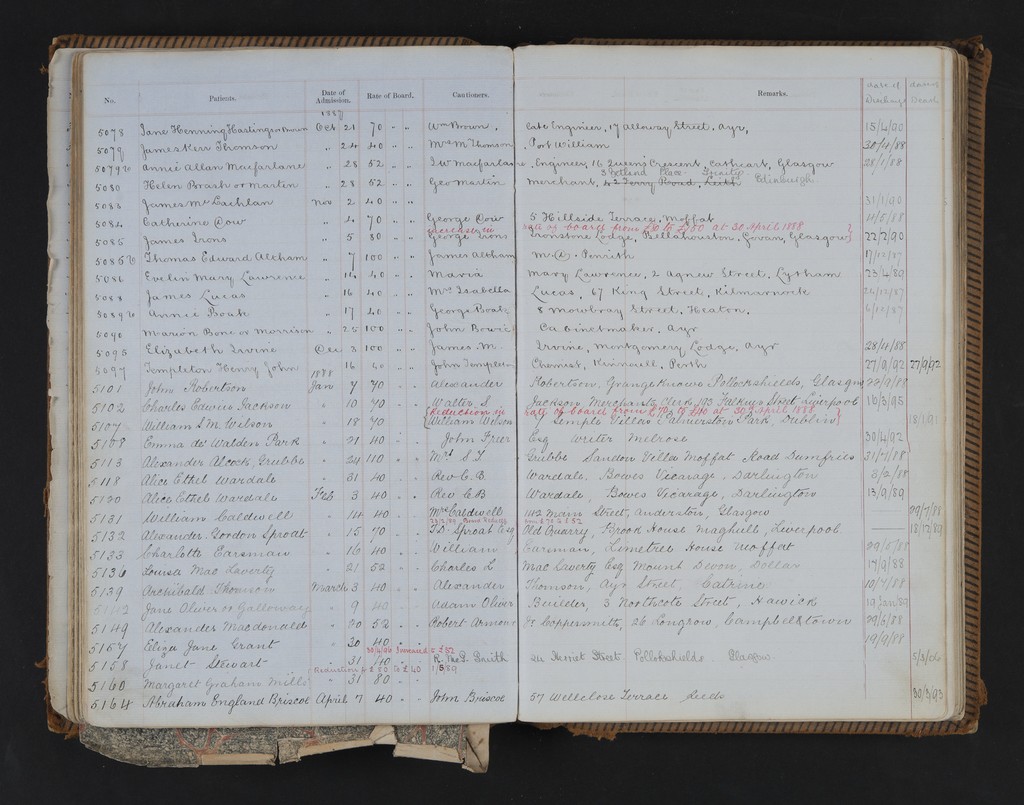 No. Patients. Date of Admission. Rate of Board. Cautioners. Remarks. date of Discharge Dead
1887
5078 Jane Henning Hastings or Brown Oct 21 70 " " Wm Brown, late Engineer, 17 Alloway Street, Ayr, 15/4/90
5079 James Kerr Thomson " 24 40 " " Mrs M Thomson, Port William 30/4/88
Annie Allan Macfarlane " 28 52 " " Macfarlane, Engineer, 16 Queen's Crescent, Cathcart, Glasgow 28/1/88
3 Zetland Place Trinity
5080 Helen Brash or Martin " 28 52 " " Geo Martin Merchant, Ferry Road, Leith Edinburgh
5083 James McLachlan Nov 2 40 " " 31/1/90
5084 Catherine Dow " 4 70 " " George Dow 5 Hillside Terrace, Moffat 11/5/88
increased in rate of board from £ to £80 at 30 April 1888
5085 James Irons " 5 80 " " George Irons Ironstone Lodge, Bellahouston, Govan, Glasgow 22/2/90
Thomas Edward Altham " 7 100 " " James Altham Penrith 17/12/87
5086 Evelin Mary Lawrence " 14 40 " " Maria Mary Lawrence, 2 Agnew Street, Lytham 23/4/89
5088 James Lucas " 16 40 " " Mrs Isabella Lucas, 67 King Street, Kilmarnock 24/12/87
Annie " 17 40 " " George 8 Mowbray Street, Heaton, 6/12/87
5090 Marion Bone or Morrison " 25 100 " " John Bowie Cabinetmaker, Ayr
5095 Elizabeth Irvine Dec 3 100 " " James M. Irvine, Montgomery Lodge, Ayr 28/4/88
5097 Templeton Henry John " 16 40 " " John Templeton Chemist, Kinnoull, Perth 27/9/92 27/9/92
1888
5101 John Robertson Jan 7 70 " " Alexander Robertson, Grangeknowe Pollokshields, Glasgow 22/9/88
5102 Charles Edwin Jackson " 10 70 " " Walter S. Jackson, Merchants Clerk, 193 Falkner Street Liverpool 16/3/95
Reduction in Rate of board from £70 to £40 at 30 April 1888
5107 William S. M. Wilson " 18 70 " " William Wilson 7 Temple Villas Palmerston Park, Dublin 18/1/91
5108 Emma de Walden Park " 21 40 " " John Freer Esq Writer Melrose 30/4/92
5113 Alexander Alcock Grubbe " 24 110 " " Mrs S. T. Grubbe Sandon Villa Moffat Road Dumfries 31/7/88
5118 Alice Ethel Wardale " 31 40 " " Rev C. B. Wardale. Bowes Vicarage, Darlington 3/2/88
5120 Alice Ethel Wardale Feb 3 40 " " Rev C B Wardale, Bowes Vicarage, Darlington 13/9/89
5131 William Caldwell " 14 40 " " Mrs Caldwell 142 Main Street, Anderston, Glasgow 29/7/88
Board Reduced from £70 to £52
5132 Alexander Gordon Sproat " 15 70 " " T. D. Sproat Esq Old Quarry, Brook House Maghull, Liverpool 18/12/89
5133 Charlotte Earsman " 16 40 " " William Earsman, Limetree House Moffat 29/5/88
5136 Louisa Mac Laverty " 21 52 " " Charles L Mac Laverty Esq Mount Devon, Dollar 14/9/88
5139 Archibald Thomson March 3 40 " " Alexander Thomson, Ayr Street, Catrine 10/7/88
Jane Oliver or Galloway " 9 40 " " Adam Oliver Builder, 3 Northcote Street, Hawick 19 Jan/89
5149 Alexander Macdonald " 20 52 " " Robert Armour Jr Coppersmith, 26 Longrow, Campbeltown 29/3/88
5157 Eliza Jane Grant " 30 40 " " 19/9/88
30/4/06 Increased to £52
5158 Janet Stewart " 31 40 " " R. Smith 24 Herriet Street Pollokshields Glasgow 5/3/06
Reduction £80 to £40 1/5/89
5160 Margaret Graham Mills " 31 80 " "
5164 Abraham England Briscoe April 7 40 " " John Briscoe 57 Wellclose Terrace Leeds 30/3/93